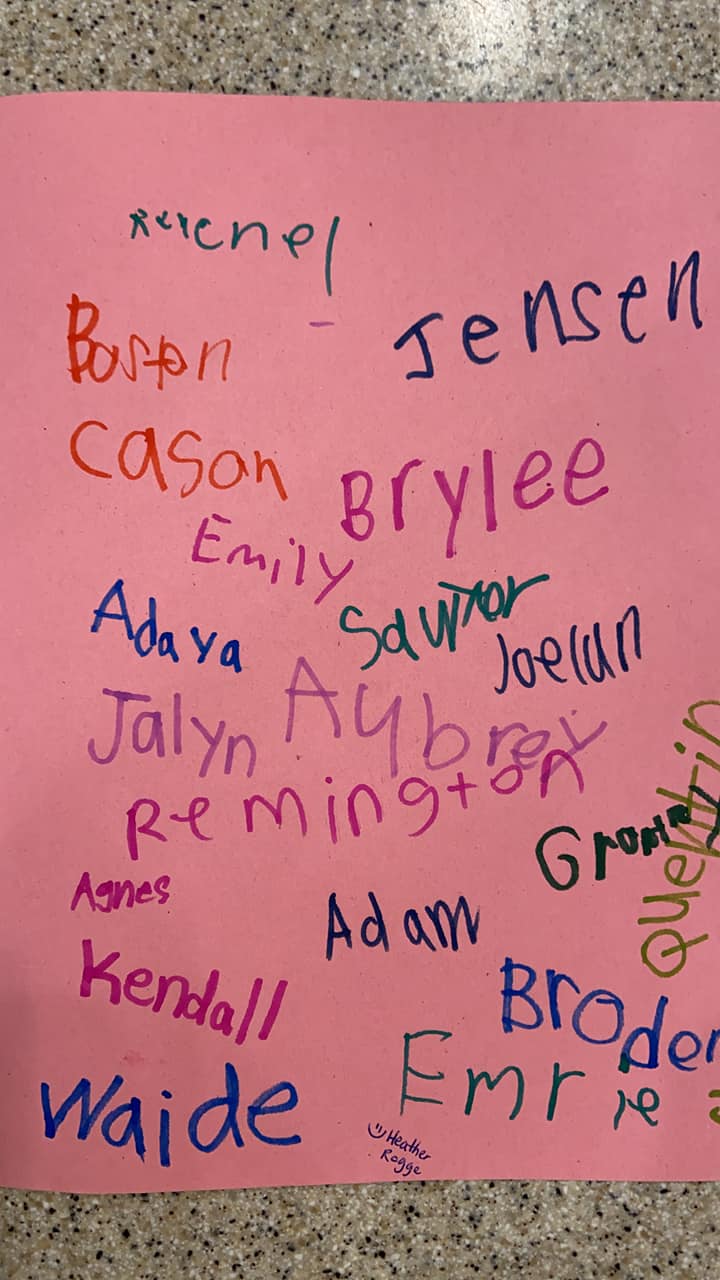 Jensen
Boston
Cason
Brylee
Emily
Adaya
Sawyer
Joelun
Jalyn
Aubrey
Remington
Quentin
Agnes
Adam
Kendall
Broder
Emrie
Waide
Heather
Rogge